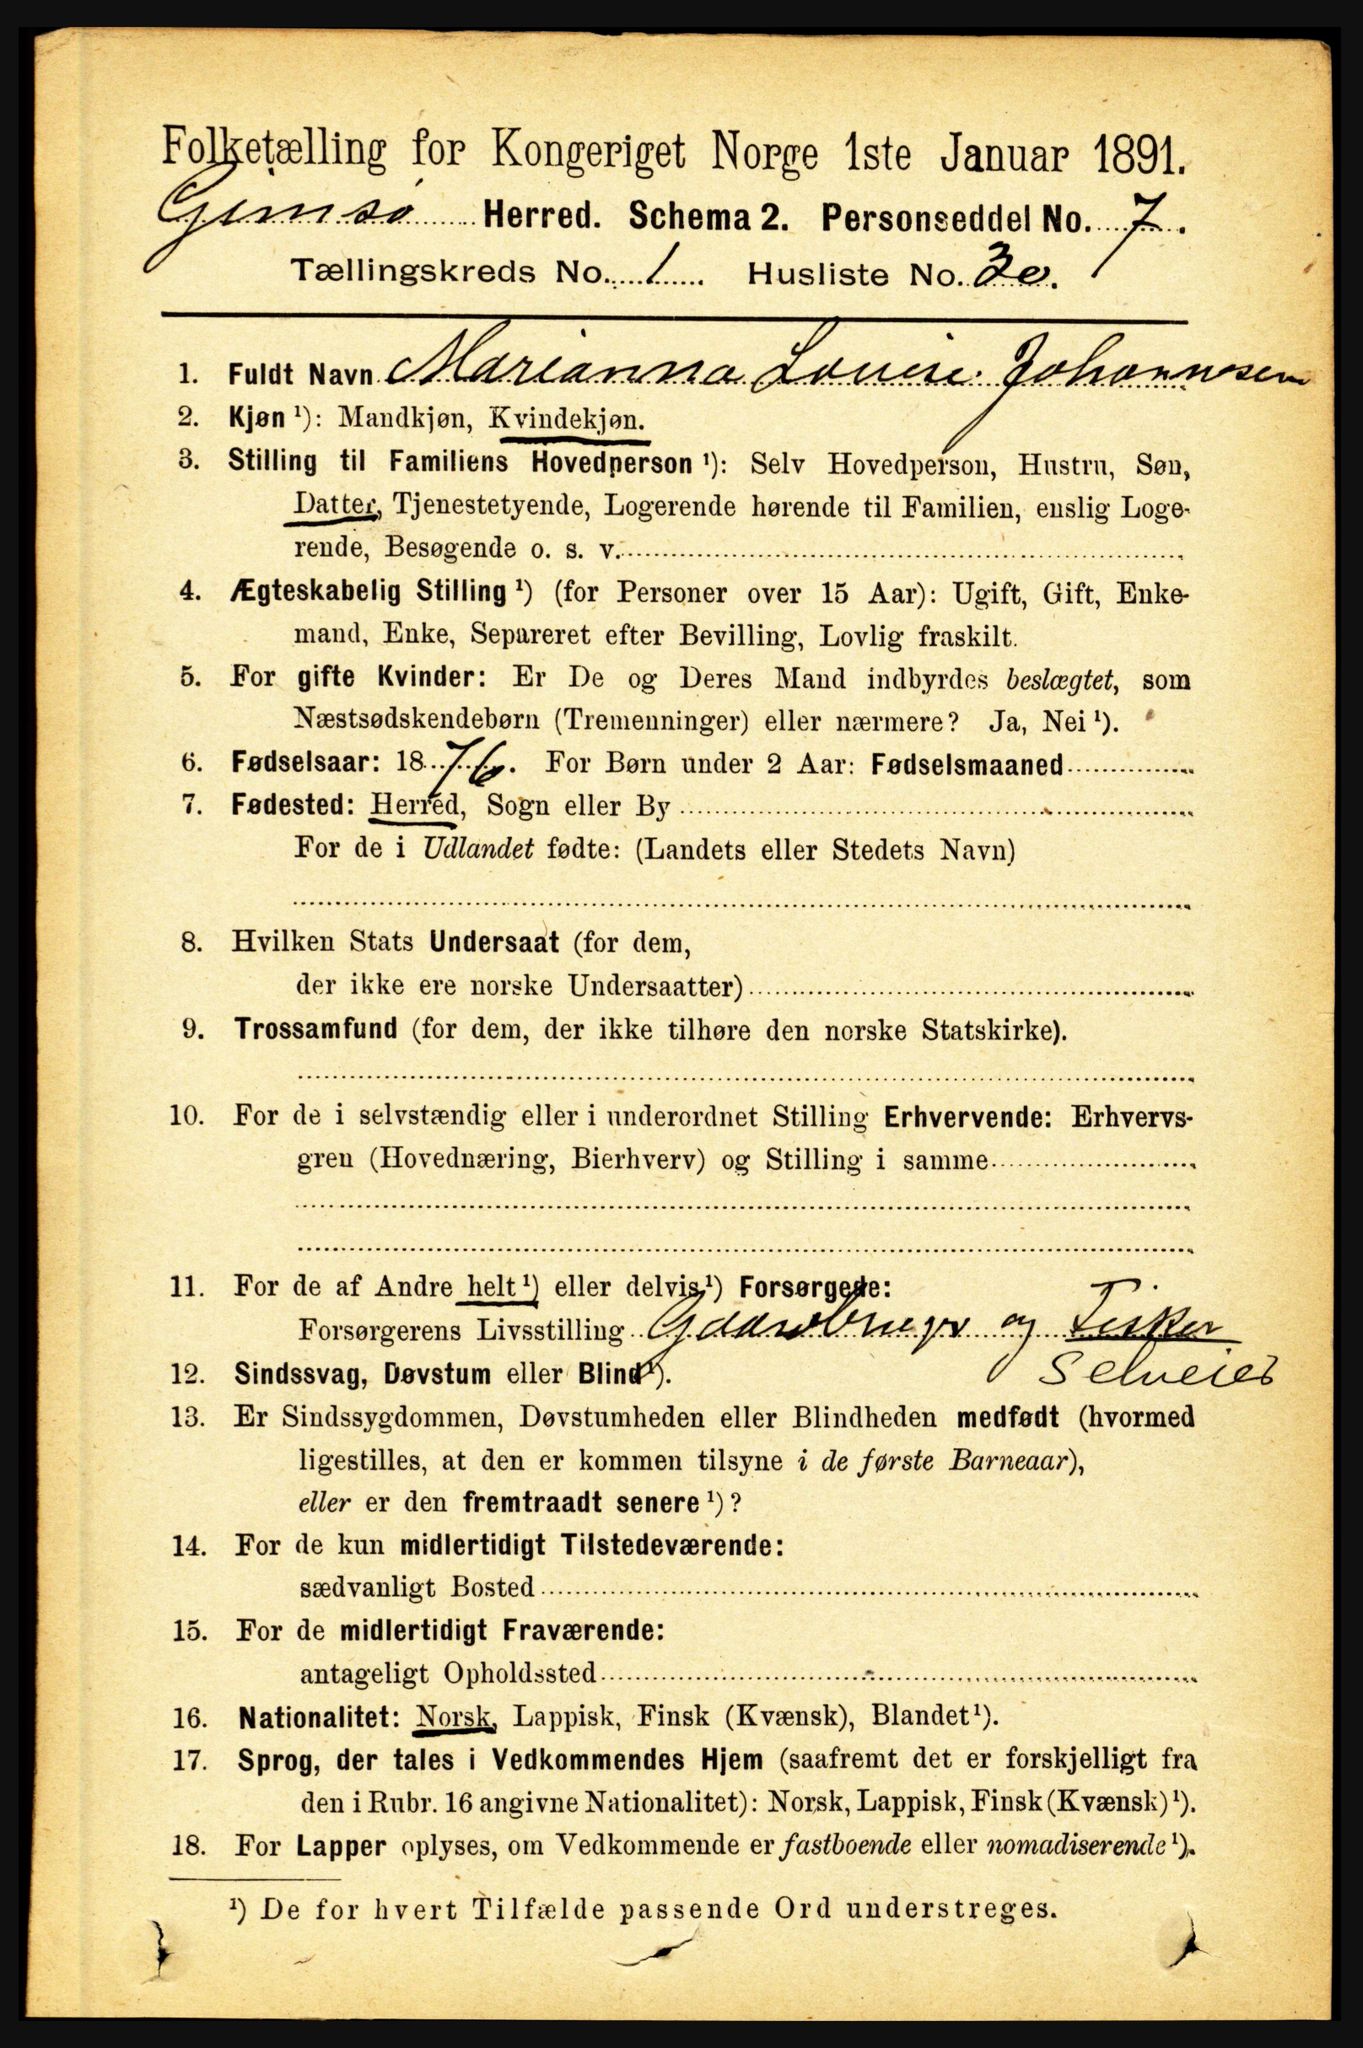 Folketælling for Kongeriget Norge 1ste Januar 1891.
Gimsø Herred. Schema 2. Personseddel No. 7.
Tællingskreds No. 1. Husliste No. 30.
1. Fuldt Navn Marianna Lovise Johannesen
2. Kjøn ¹): Mandkjøn, Kvindekjøn.
3. Stilling til Familiens Hovedperson ¹): Selv Hovedperson, Hustru, Søn,
Datter, Tjenestetyende, Logerende hørende til Familien, enslig Loge-
rende, Besøgende o. s. v.
4. Ægteskabelig Stilling ¹) (for Personer over 15 Aar): Ugift, Gift, Enke-
mand, Enke, Separeret efter Bevilling, Lovlig fraskilt.
5. For gifte Kvinder: Er De og Deres Mand indbyrdes beslægtet, som
Næstsødskendebørn (Tremenninger) eller nærmere? Ja, Nei ¹).
6. Fødselsaar: 1876. For Børn under 2 Aar: Fødselsmaaned
7. Fødested: Herred, Sogn eller By
For de i Udlandet fødte: (Landets eller Stedets Navn)
8. Hvilken Stats Undersaat (for dem,
der ikke ere norske Undersaatter)
9. Trossamfund (for dem, der ikke tilhøre den norske Statskirke).
10. For de i selvstændig eller i underordnet Stilling Erhvervende: Erhvervs-
gren (Hovednæring, Bierhverv) og Stilling i samme
11. For de af Andre helt ¹) eller delvis ¹) Forsørgede:
Forsørgerens Livsstilling Gaardbruger og Fisker
Selveier
12. Sindssvag, Døvstum eller Blind ¹).
13. Er Sindssygdommen, Døvstumheden eller Blindheden medfødt (hvormed
ligestilles, at den er kommen tilsyne i de første Barneaar),
eller er den fremtraadt senere ¹)?
14. For de kun midlertidigt Tilstedeværende:
sædvanligt Bosted
15. For de midlertidigt Fraværende:
antageligt Opholdssted
16. Nationalitet: Norsk, Lappisk, Finsk (Kvænsk), Blandet ¹).
17. Sprog, der tales i Vedkommendes Hjem (saafremt det er forskjelligt fra
den i Rubr. 16 angivne Nationalitet): Norsk, Lappisk, Finsk (Kvænsk) ¹).
18. For Lapper oplyses, om Vedkommende er fastboende eller nomadiserende ¹).
¹) De for hvert Tilfælde passende Ord understreges.